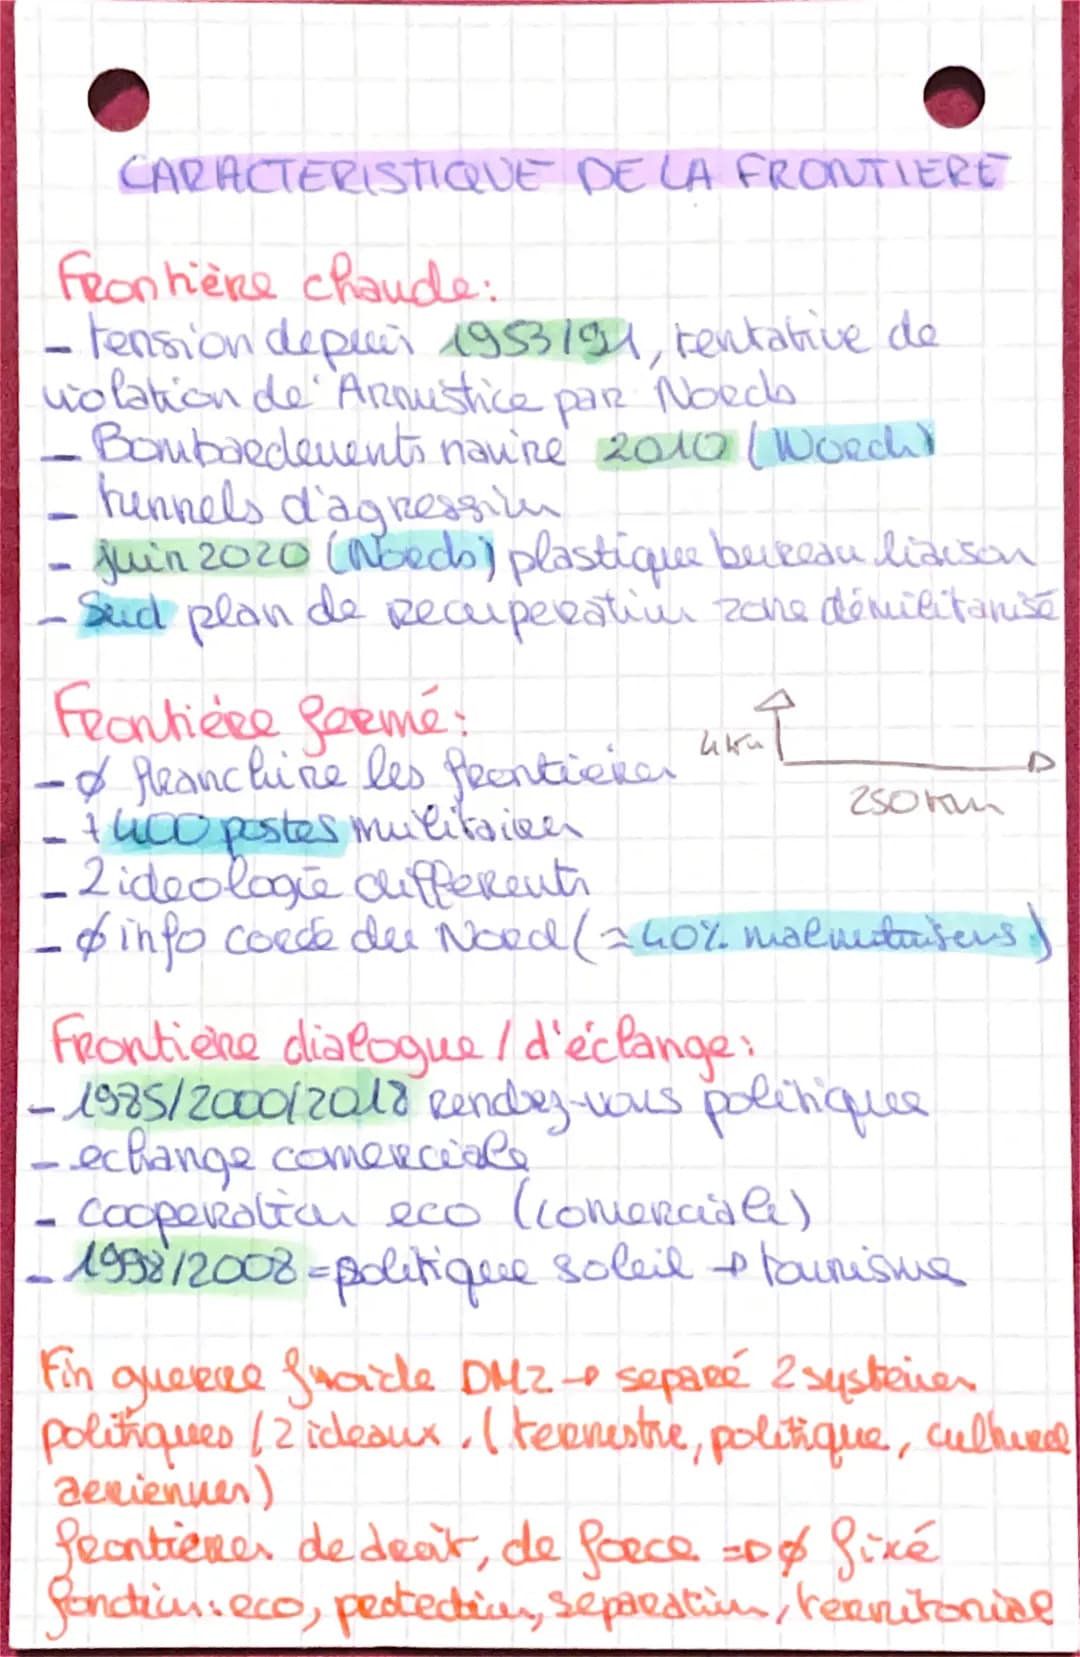 CARACTERISTIQUE DE LA FRONTIERE
Frontière chaude:
- tension depuis 1953/91, tentative de
violation de Armistice par Nords
- Bombardements navire 2010 (Nord)
- tunnels d'agression
- juin 2020 (Nords) plastique bureau liaison
- Sud plan de recuperation zone démilitarisé
Frontière fermé:
- ∅ franchire les frontières
4km
250 km
- + 400 postes militaires
- 2 ideologie differents
- ∅ info corée du Nord (≈40% malnutrisens)
Frontière dialogue / d'échange:
- 1985/2000/2018 rendez-vous politiques
- echange comerciale
- cooperation eco (comerciale)
- 1998/2008 = politique soleil → tourisme
Fin guerre froide DMZ → separé 2 systèmes
politiques / 2 ideaux. (terrestre, politique, culturel
aeriennes)
frontières de droit, de force => ∅ fixé
fonction: eco, protection, separation, territoriale